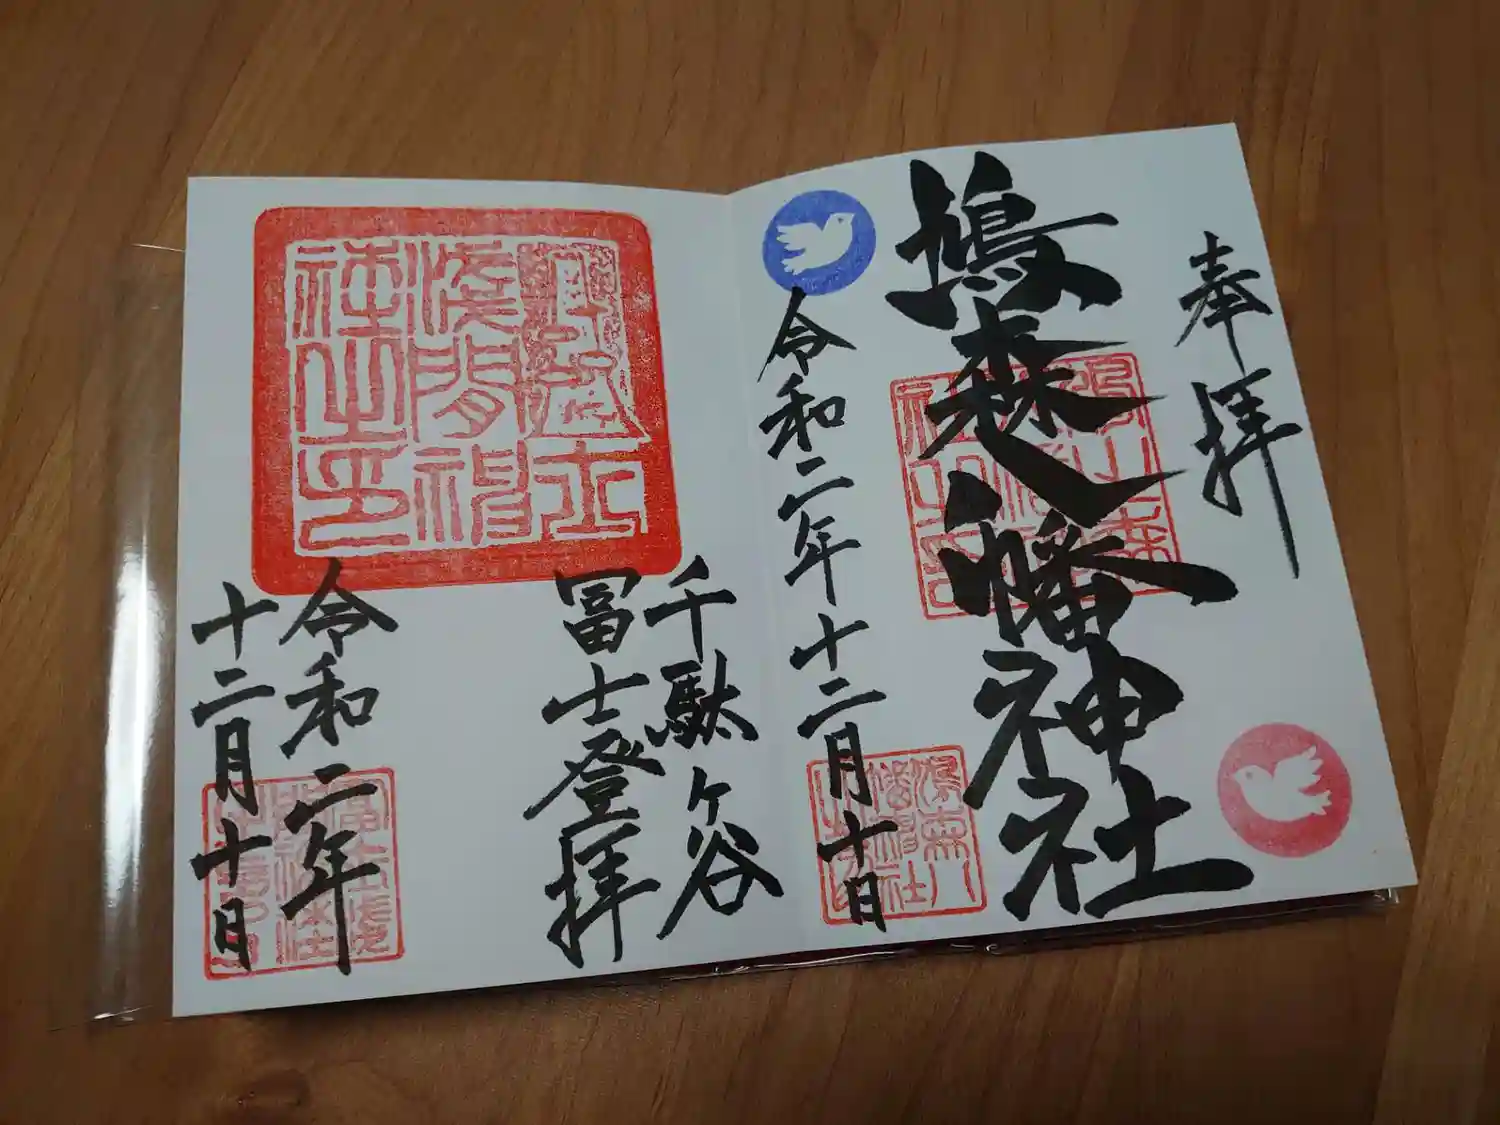 奉拝
鳩森八幡神社
令和二年十二月十日
千駄ヶ谷
冨士登拝
令和二年
十二月十日